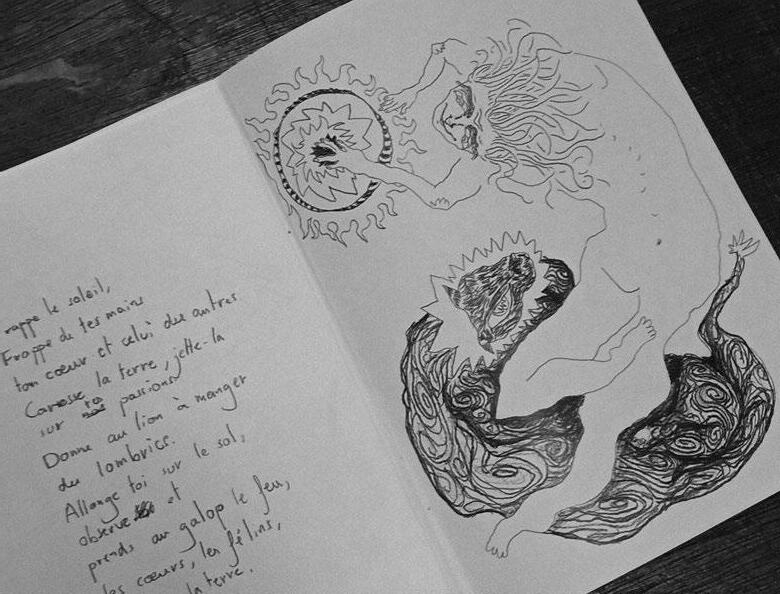 rappe le soleil,
Frappe de tes mains
ton cœur et celui des autres
Caresse la terre, jette-la
sur tes passions
Donne au lion à manger
des lombrics.
Allonge toi sur le sol,
observe et
prends au galop le feu,
les cœurs, les félins,
la terre.